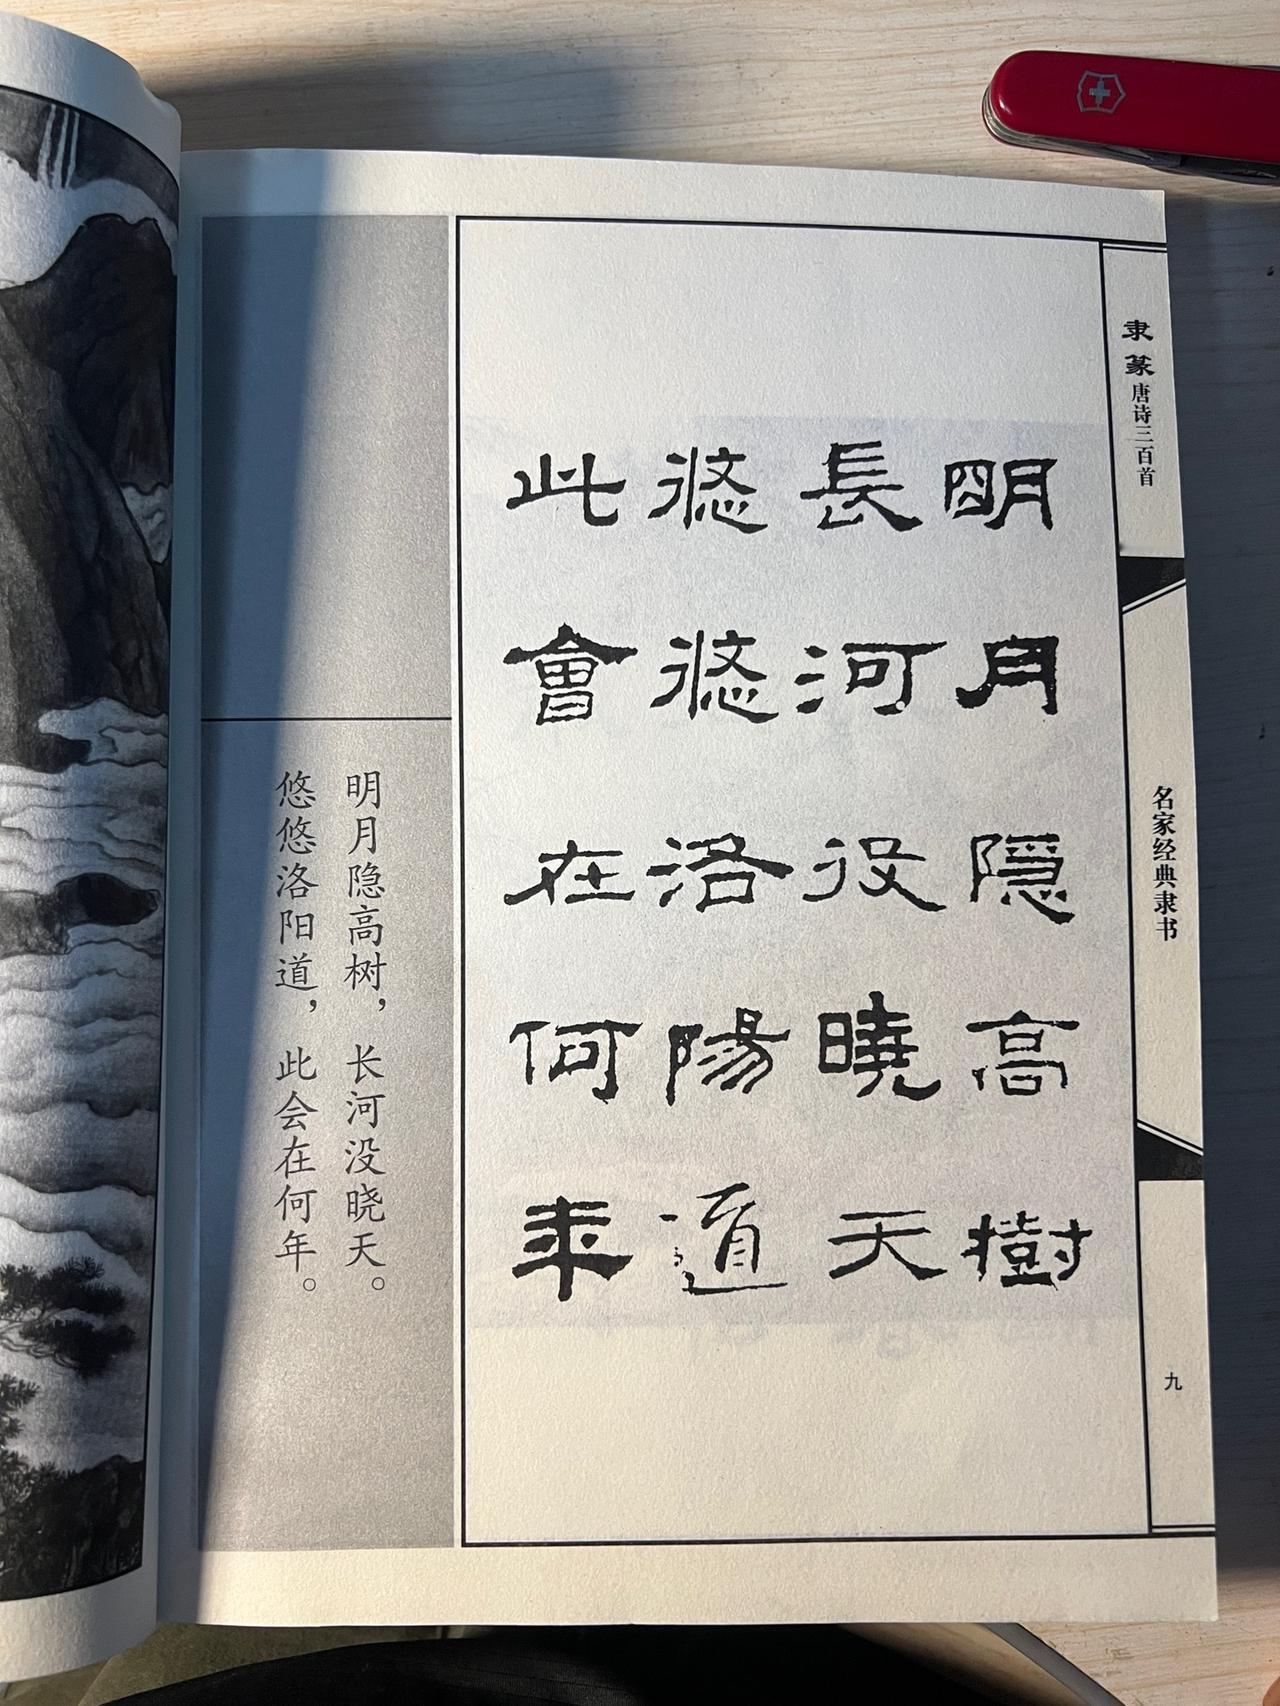 隶篆唐诗三百首
名家经典隶书
九
明月隱高樹
長河没曉天
悠悠洛陽道
此會在何年
明月隐高树，长河没晓天。
悠悠洛阳道，此会在何年。